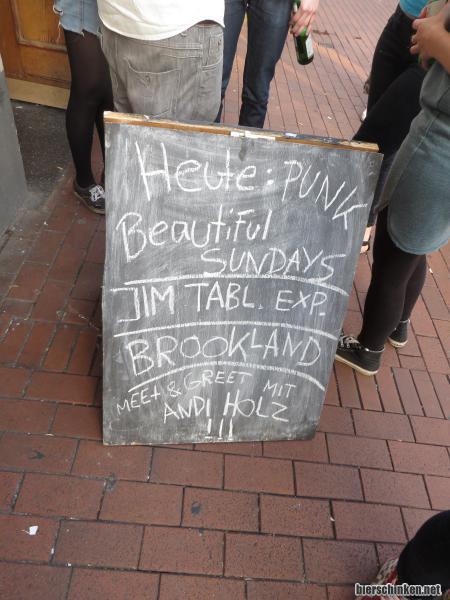 Heute: PUNK
Beautiful
SUNDAYS
JIM TABL. EXP.
BROOKLAND
MEEt & GREET MIT
ANDI HOLZ
!!!
bierschinken.net